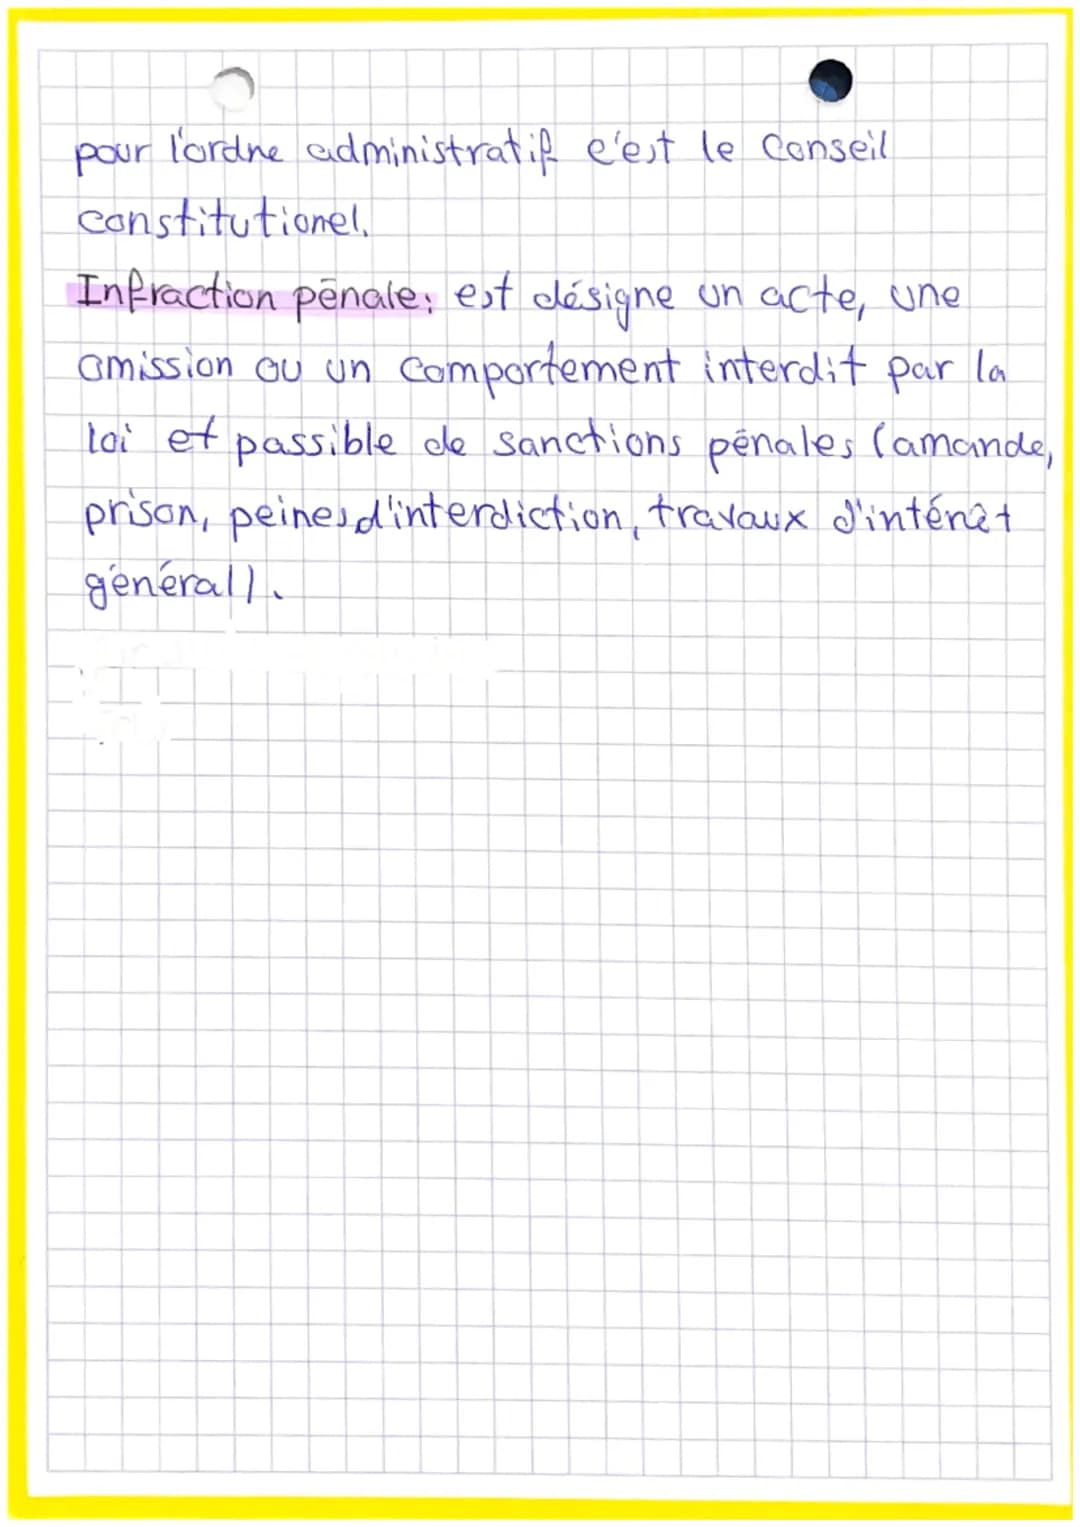 pour l'ordre administratif c'est le Conseil
constitutionel.
Infraction pénale: est désigne un acte, une
omission ou un comportement interdit par la
loi et passible de sanctions pénales (amande,
prison, peines d'interdiction, travaux d'intérêt
général).